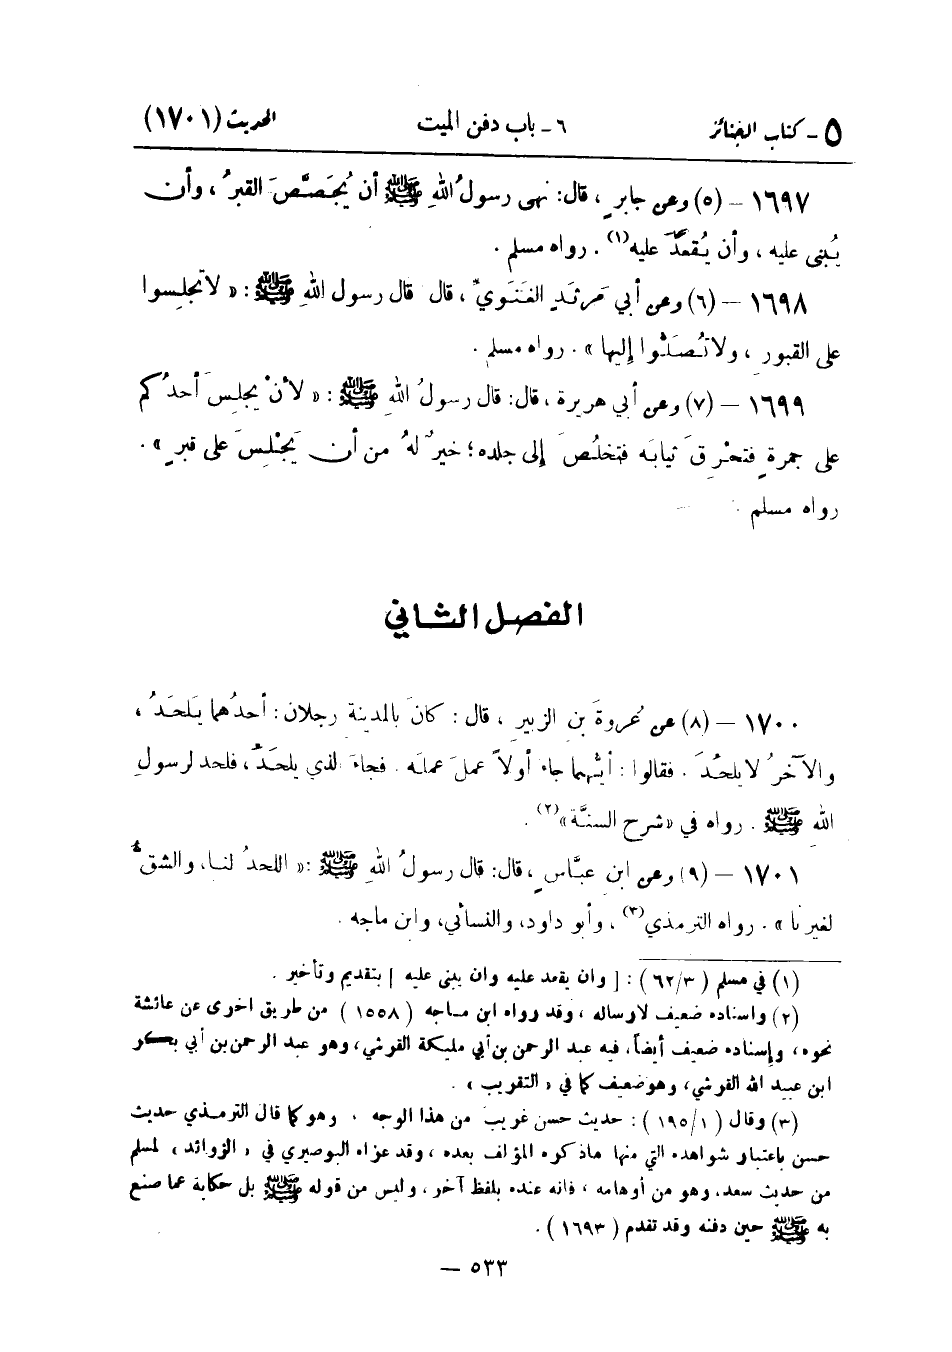 ٥ - كتاب الجنائز ٦ - باب دفن الميت الحديث (١٧٠١)
١٦٩٧ - (٥) وعن جابرٍ ، قال: نهى رسولُ اللهِ ﷺ أن يُجَصَّصَ القبرُ ، وأن
يُبنى عليه ، وأن يُقعَدَ عليه(١) . رواه مسلم .
١٦٩٨ - (٦) وعن أبي مَرثَدٍ الغَنَويِّ ، قال قال رسول اللهِ ﷺ : « لا تجلِسوا
على القبورِ ، ولا تُصَلُّوا إليها » . رواه مسلم .
١٦٩٩ - (٧) وعن أبي هريرة ، قال: قال رسولُ اللهِ ﷺ : « لأنْ يجلِسَ أحدُكم
على جمرةٍ فتحْرِقَ ثيابَه فتخلُصَ إلى جلده؛ خيرٌ لهُ من أن يَجْلِسَ على قبرٍ » .
رواه مسلم .
الفصل الثاني
١٧٠٠ - (٨) عن عُروةَ بن الزبيرِ ، قال : كانَ بالمدينةِ رجلان : أحدُهما يَلحَدُ ،
والآخرُ لا يلحَدُ . فقالوا : أيُّهما جاء أولاً عملَ عملَه . فجاءَ الذي يلحَدُ ، فلحد لرسولِ
اللهِ ﷺ . رواه في «شرح السنَّة»(٢) .
١٧٠١ - (٩) وعن ابنِ عبَّاسٍ ، قال: قال رسولُ اللهِ ﷺ : « اللحدُ لنا، والشقُّ
لغيرنا » . رواه الترمذي(٣) ، وأبو داود، والنسائي، وابن ماجه .
(١) في مسلم ( ٦٢/٣ ) : [ وان يقعد عليه وان يبنى عليه ] بتقديم وتأخير .
(٢) واسناده ضعيف لارساله ، وقد رواه ابن ماجه ( ١٥٥٨ ) من طريق اخرى عن عائشة
نحوه، وإسناده ضعيف أيضاً، فيه عبد الرحمن بن أبي مليكة القرشي، وهو عبد الرحمن بن أبي بكر
ابن عبيد الله القرشي، وهو ضعيف كما في « التقريب » .
(٣) وقال ( ١٩٥/١ ) : حديث حسن غريب من هذا الوجه ، وهو كما قال الترمذي حديث
حسن باعتبار شواهده التي منها ما ذكره المؤلف بعده ، وقد عزاه البوصيري في « الزوائد » لمسلم
من حديث سعد، وهو من أوهامه ، فانه عنده بلفظ آخر ، وليس من قوله ﷺ بل حكاية عما صنع
به ﷺ حين دفنه وقد تقدم ( ١٦٩٣ ) .
٥٣٣ —